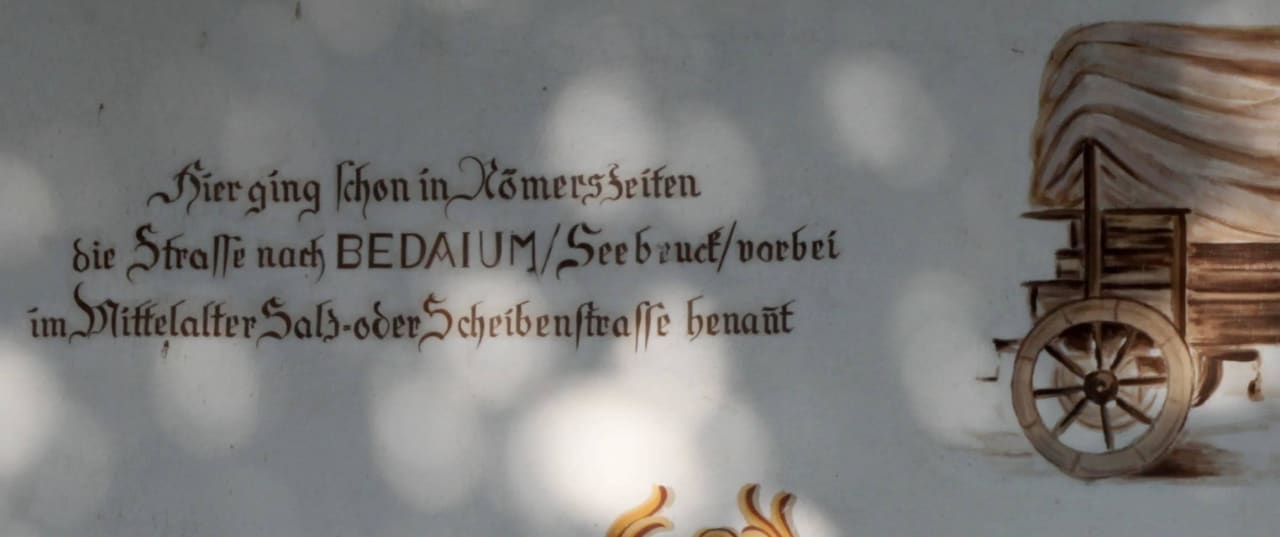 Hier ging schon in Römerszeiten
die Strasse nach BEDAIUM/Seebruck/vorbei
im Mittelalter Salz-oder Scheibenstrasse benañt